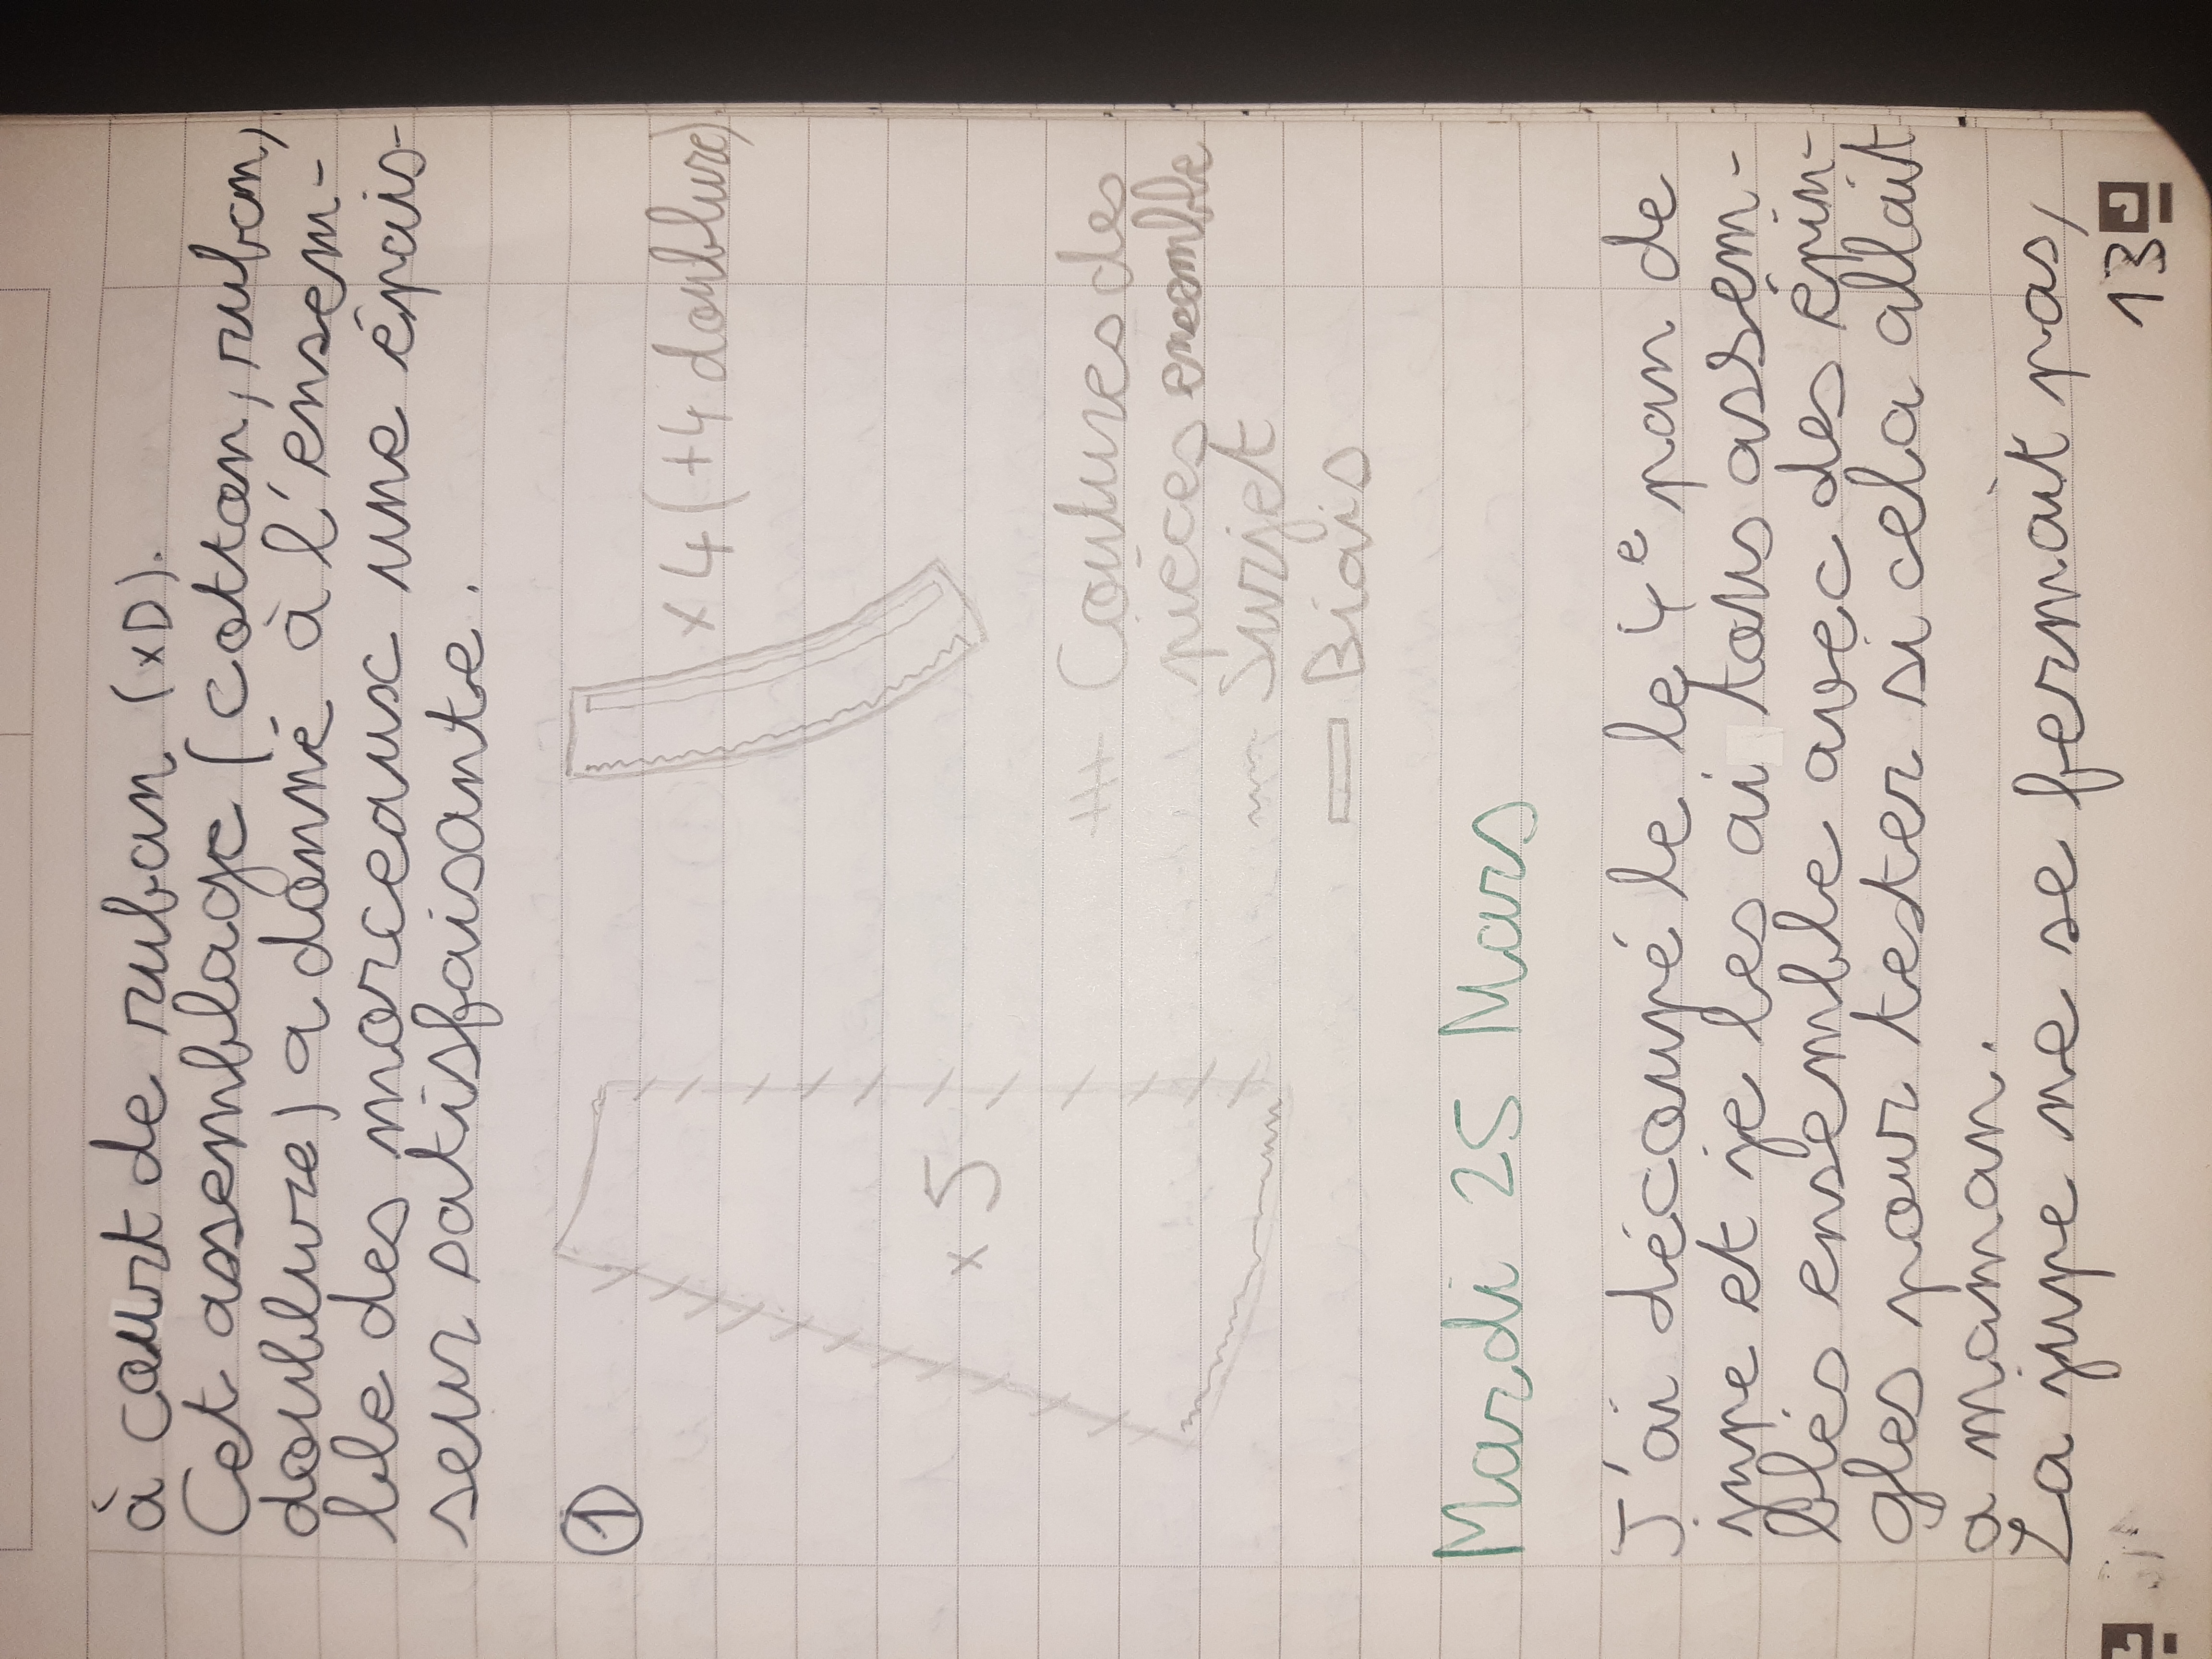 à court de ruban (xD).
Cet assemblage (coton, ruban,
doublure) a donné à l'ensem-
ble des morceaux une épais-
seur satisfaisante.
①
x 4 (+4 doublure)
x 5
# Coutures des
pièces ensemble
Surjet
Biais
Mardi 25 Mars
J'ai découpé le le 4e pan de
jupe et je les ai tous assem-
blés ensemble avec des épin-
gles pour tester si cela allait
a maman.
La jupe ne se fermait pas,
13